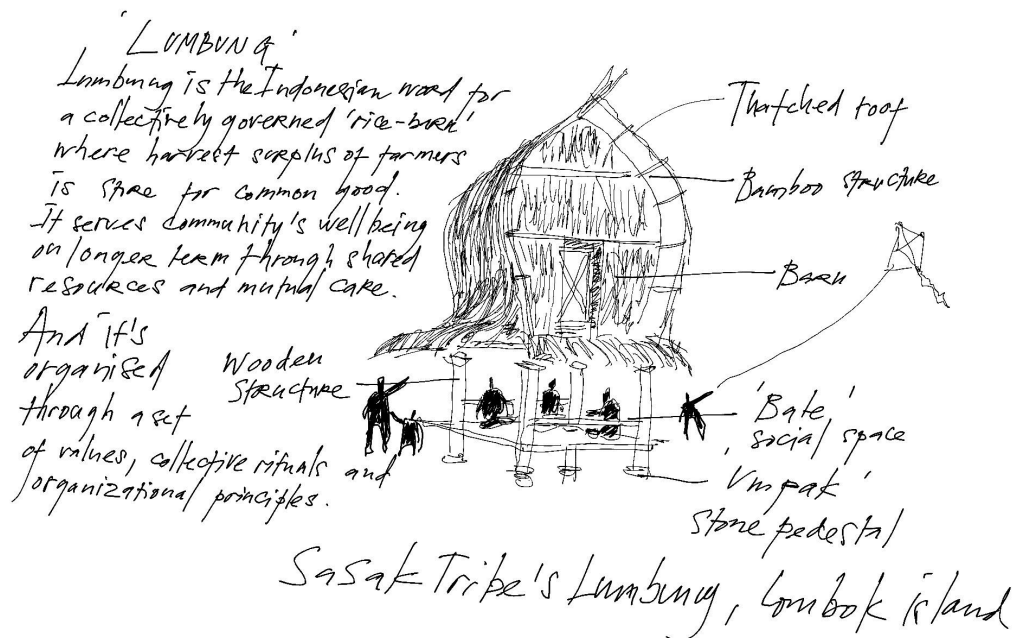 'LUMBUNG'
Lumbung is the Indonesian word for
a collectively governed 'rice-barn'
where harvest surplus of farmers
is store for common good.
It serves community's wellbeing
on longer term through shared
resources and mutual care.
And it's
organised
through a set
of values, collective rituals and
organizational principles.
Thatched roof
Bamboo structure
Barn
Wooden
structure
'Bale'
social space
'Umpak'
stone pedestal
Sasak Tribe's Lumbung, Lombok island